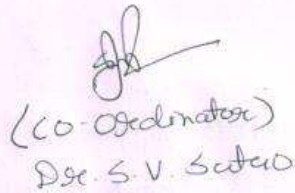 (Co-Ordinator)
Dr. S. V. Sutar